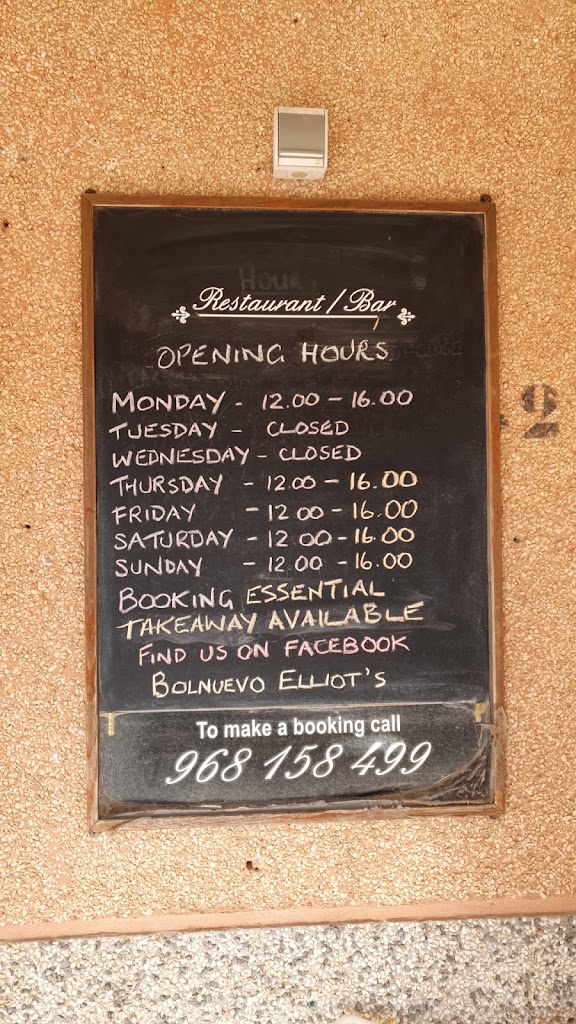 Hour
Restaurant / Bar
OPENING HOURS
MONDAY - 12.00 - 16.00
TUESDAY - CLOSED
WEDNESDAY - CLOSED
THURSDAY - 12.00 - 16.00
FRIDAY - 12.00 - 16.00
SATURDAY - 12.00 - 16.00
SUNDAY - 12.00 - 16.00
BOOKING ESSENTIAL
TAKEAWAY AVAILABLE
FIND US ON FACEBOOK
BOLNUEVO ELLIOT'S
To make a booking call
968 158 499